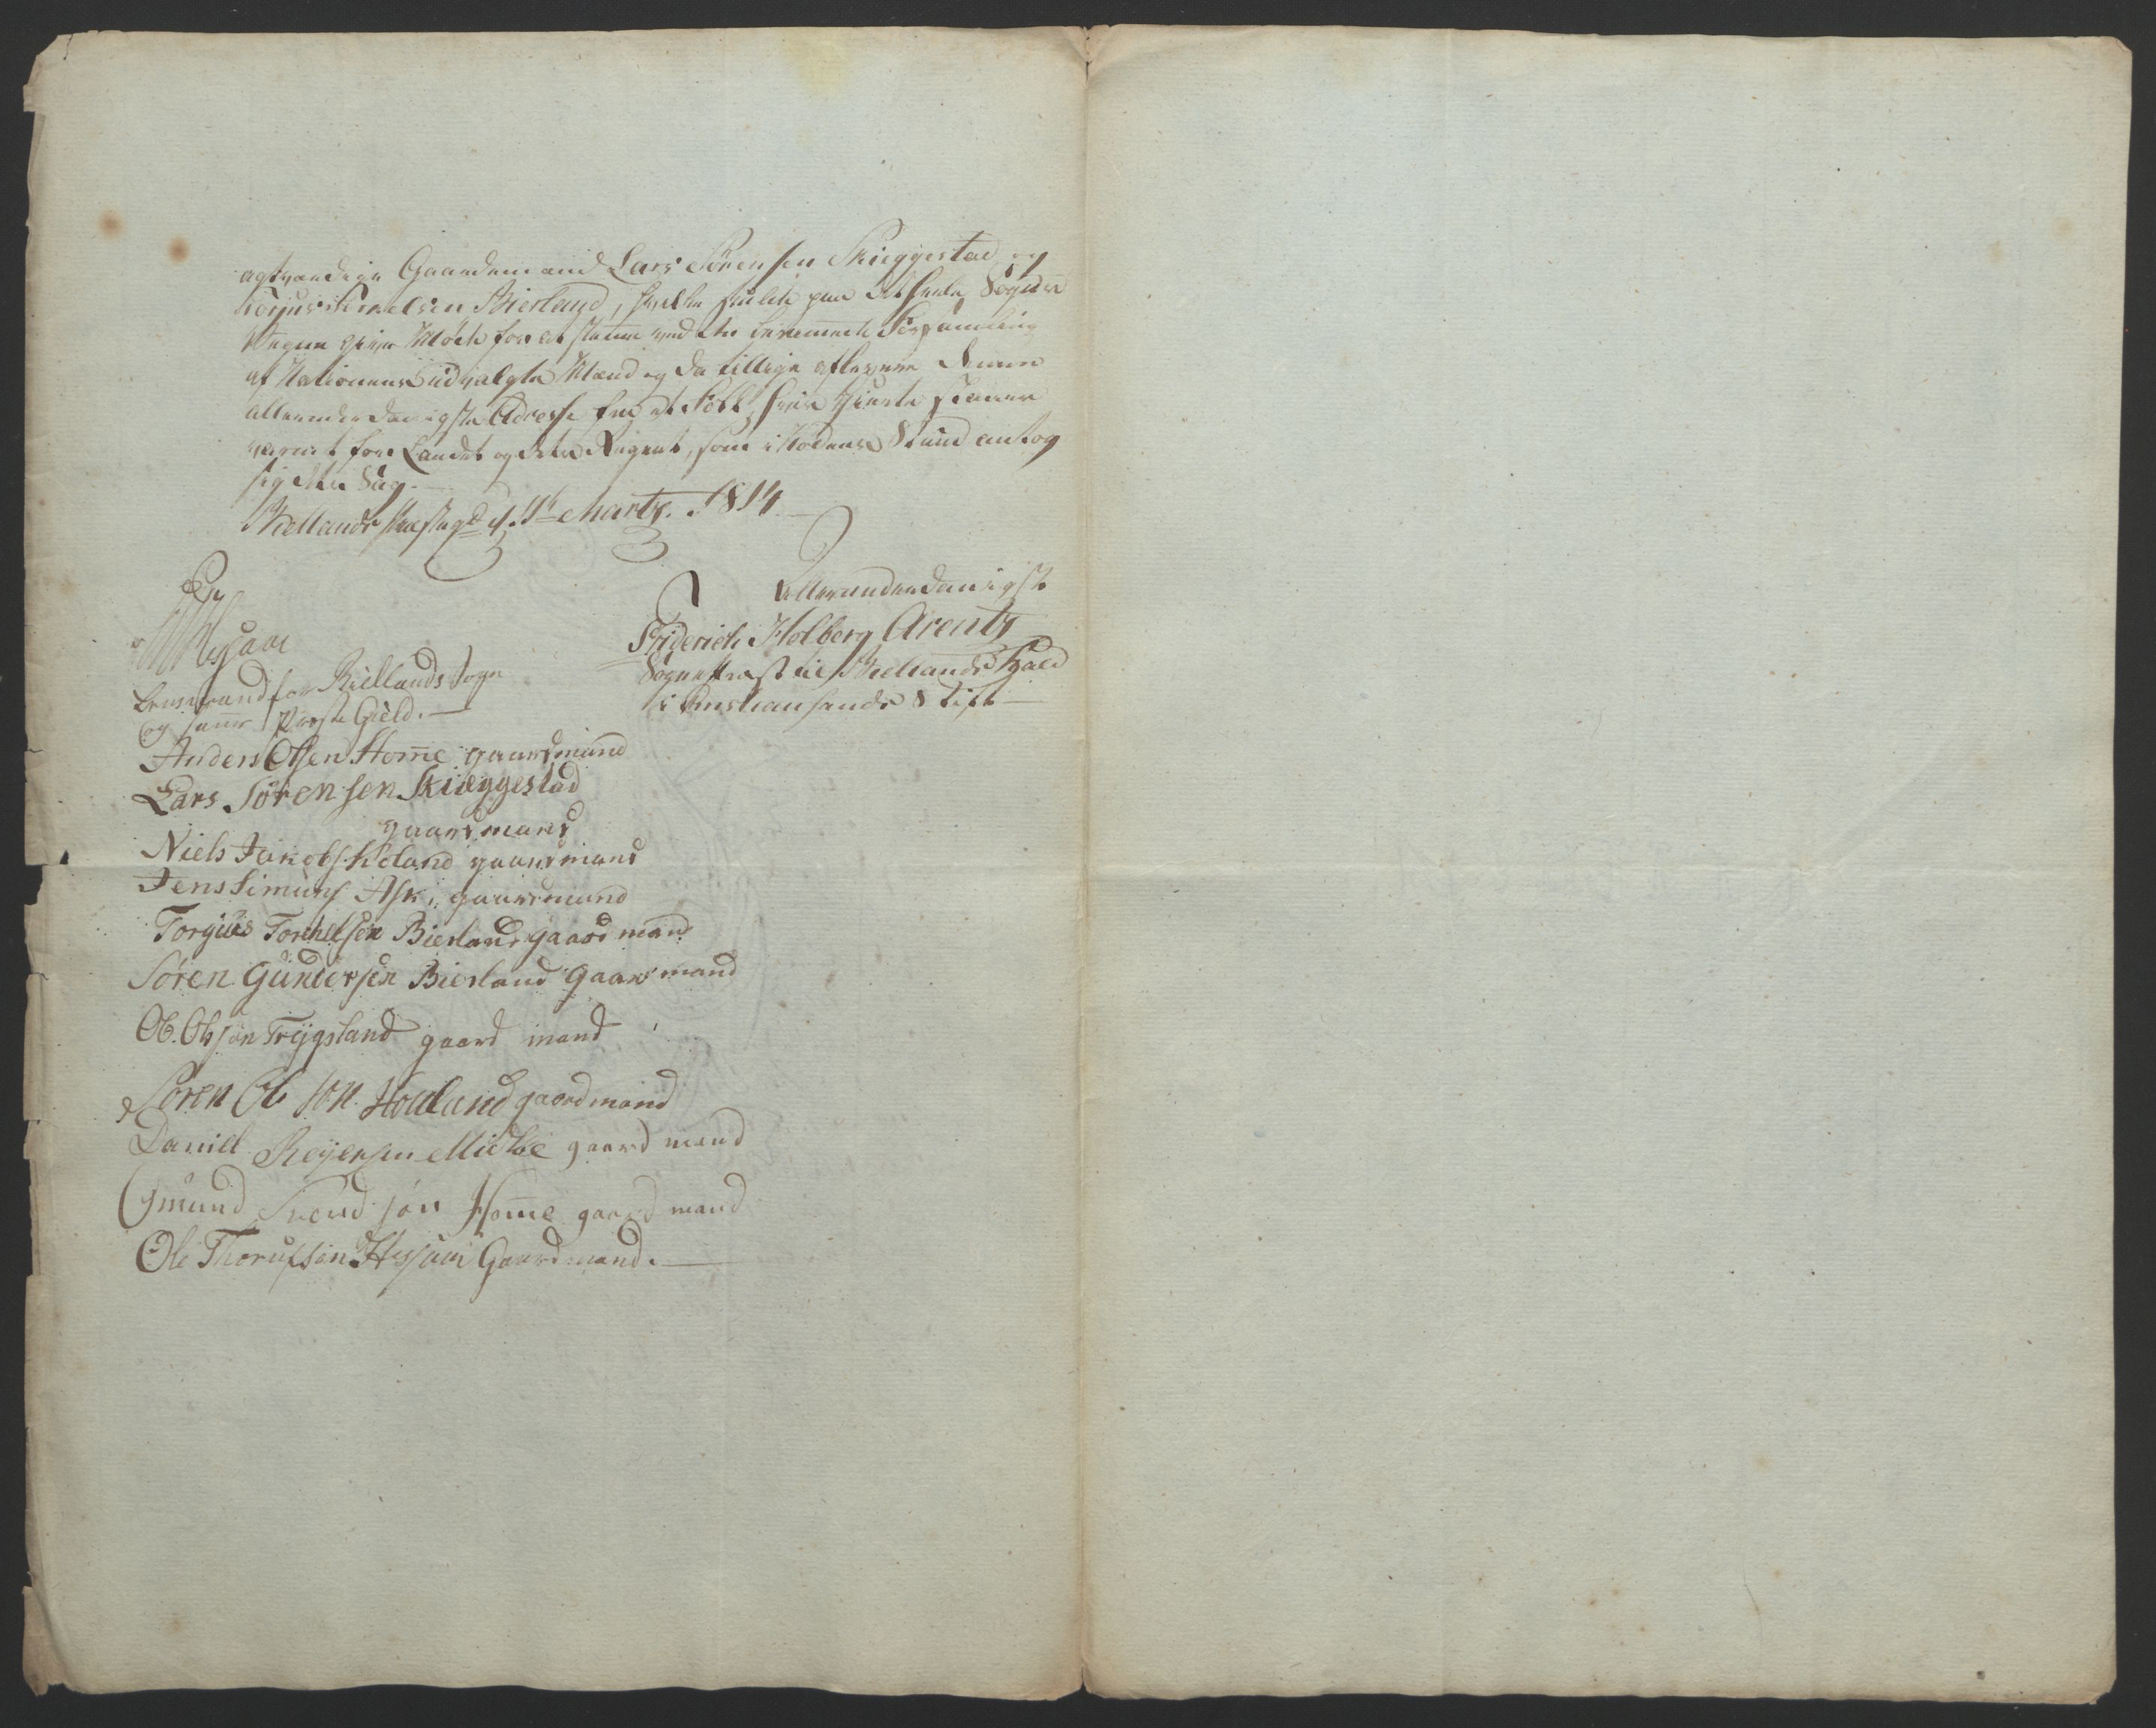 agtværdige Gaardemænd Lars Sørensen Skieggestad og
Torjus Torkelsen Bierland, hvilke paa det heele Sogns
Vegne giver Møde for at stemme ved den berammede Forsamling
af Nationens udvalgte Mænd og da tillige aflevere denne
allerunderdanigste Adresse fra et Folk, hvis Hierte stedse
varmt for Landet og dets Regent, som i Nødens Stund antog
sig dets Sag.
Biellands Præstegd d. Martz. 1814
allerunderdanigst
Friderich Holberg Arentz
Sognepræst til Biellands Kald
i Christiansands Stift
Hesaae
Lensmand for Biellands Sogn
og samme Præste Gield.
Anders Olsen Home gaardmand
Lars Sørensen Skieggestad
gaardmand
Niels Jakobs. gaardmand
Jens Simuns Ask, gaardmand
Torgius Torkelsen Bierland gaardmand
Søren Gundersen Bierland Gaardmand
Ole Olsøn Trygsland gaard mand
Søren Ol søn Houland gaardmand
Daniel Reyersen Mietbøe gaard mand
Omund Svend søn Home gaard mand
Ole Thorufsøn Hesaae Gaardmand.